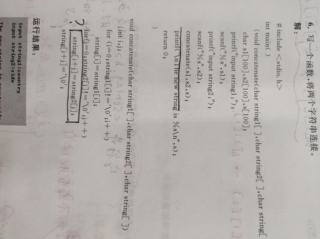 6. 写一个函数,将两个字符串连接。
解:
# include <stdio.h>
int main()
{void concatenate(char string1[ ],char string2[ ],char string[
char s1[100],s2[100],s[100];
printf("input string1:");
scanf("%s",s1);
printf("input string2:");
scanf("%s",s2);
concatenate(s1,s2,s);
printf("\nThe new string is %s\n",s);
return 0;
void concatenate(char string1[ ],char string2[ ],char string[ ])
{int i,j;
for (i=0;string1[i]!='\0';i++)
string[i]=string1[i];
for(j=0;string2[j]!='\0';j++)
string[i+j]=string2[j];
string[i+j]='\0';
运行结果:
input string1:country